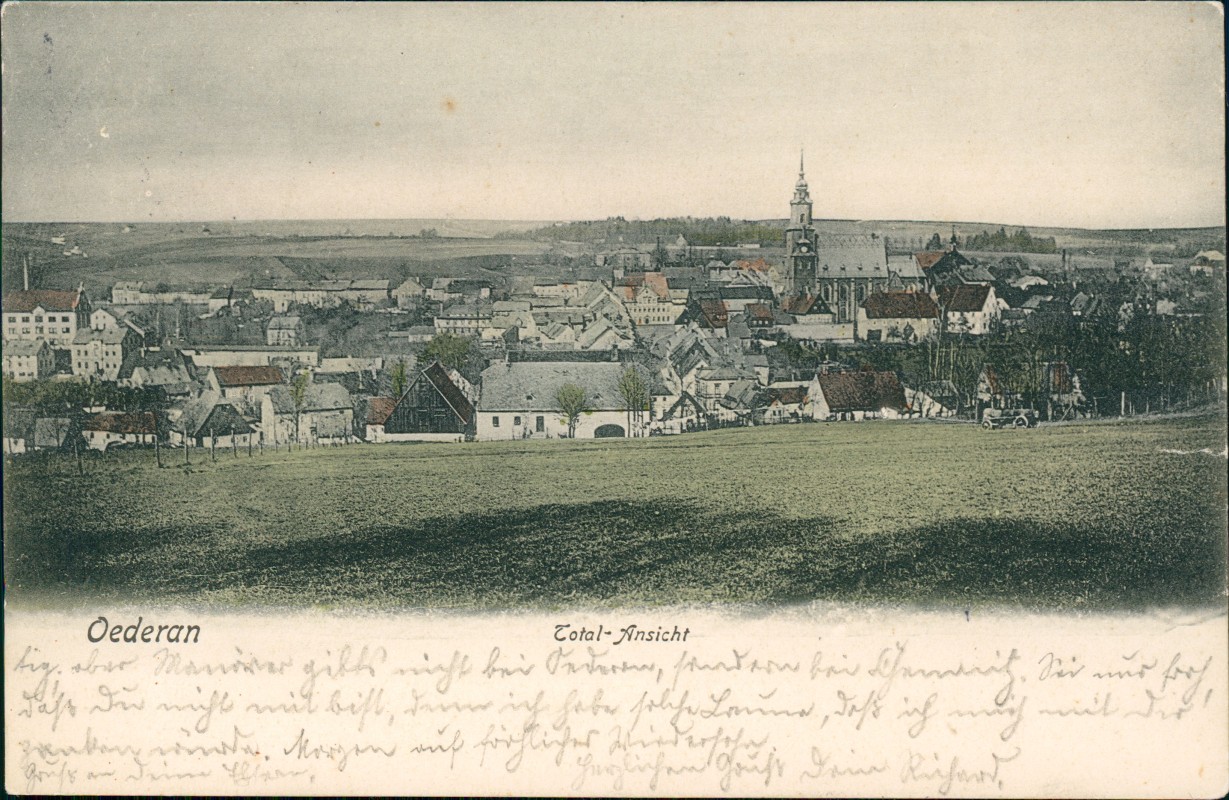 Oederan
Total-Ansicht
tig, aber Manöver gibts nicht bei Oederan, sondern bei Chemnitz. Sei nur froh,
daß Du nicht mit bist, denn ich habe solche Laune, daß ich mich mit Dir
zanken würde. Morgen auf fröhliches Wiedersehn.
Gruß an Deine Eltern.
herzlichen Gruß Dein Richard.